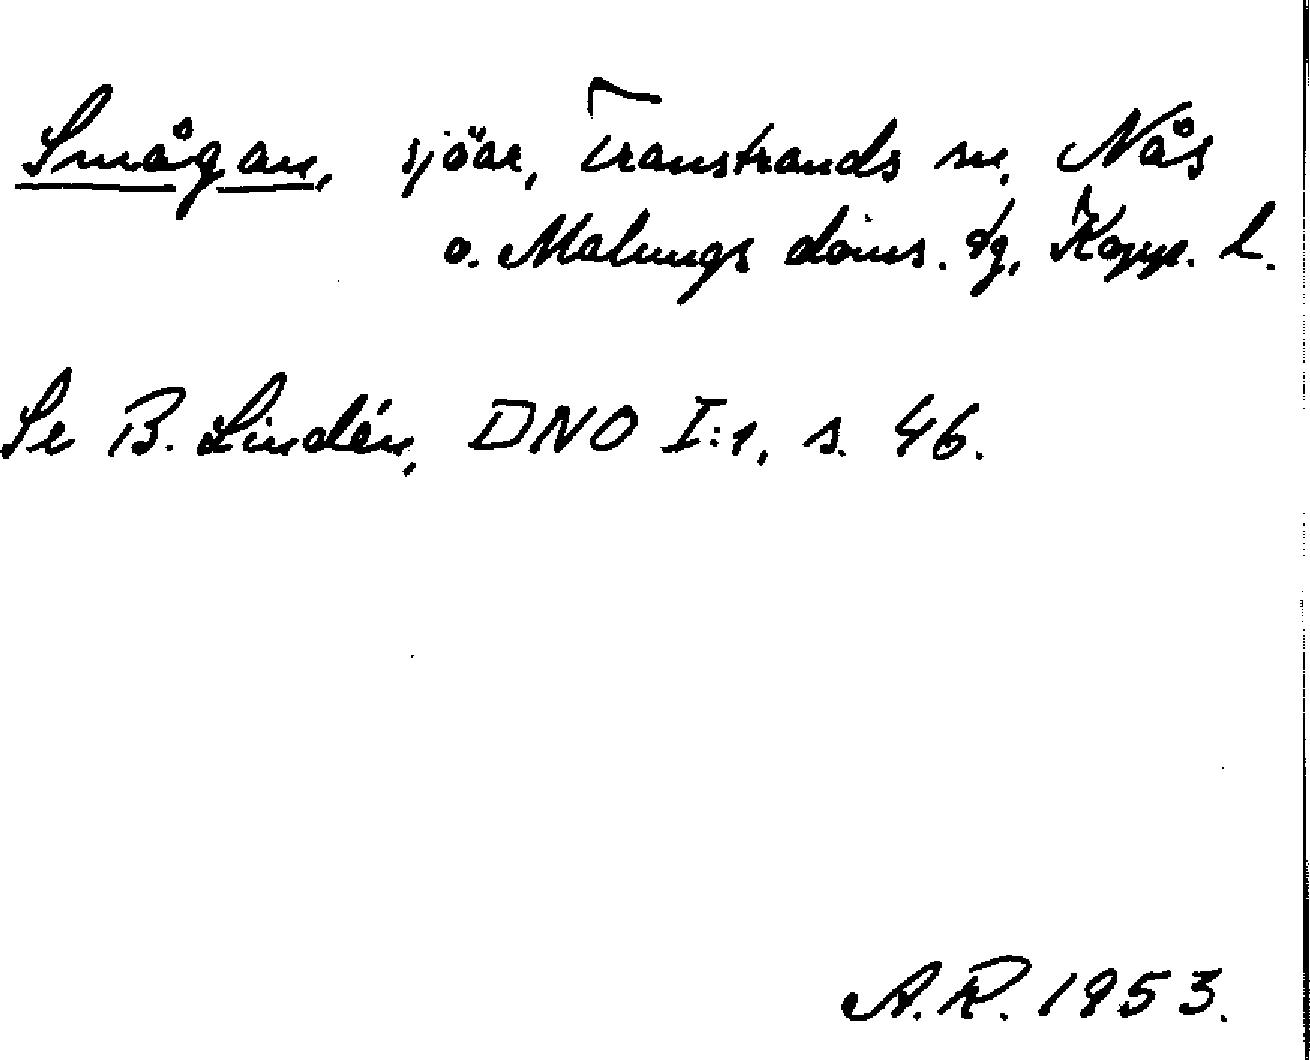 Smågan, sjöar, Transtrands sn, Nås
o. Malungs doms. dg, Kopp. l.
Se B. Lindén, DNO I:1, s. 46.
A.R. 1953.